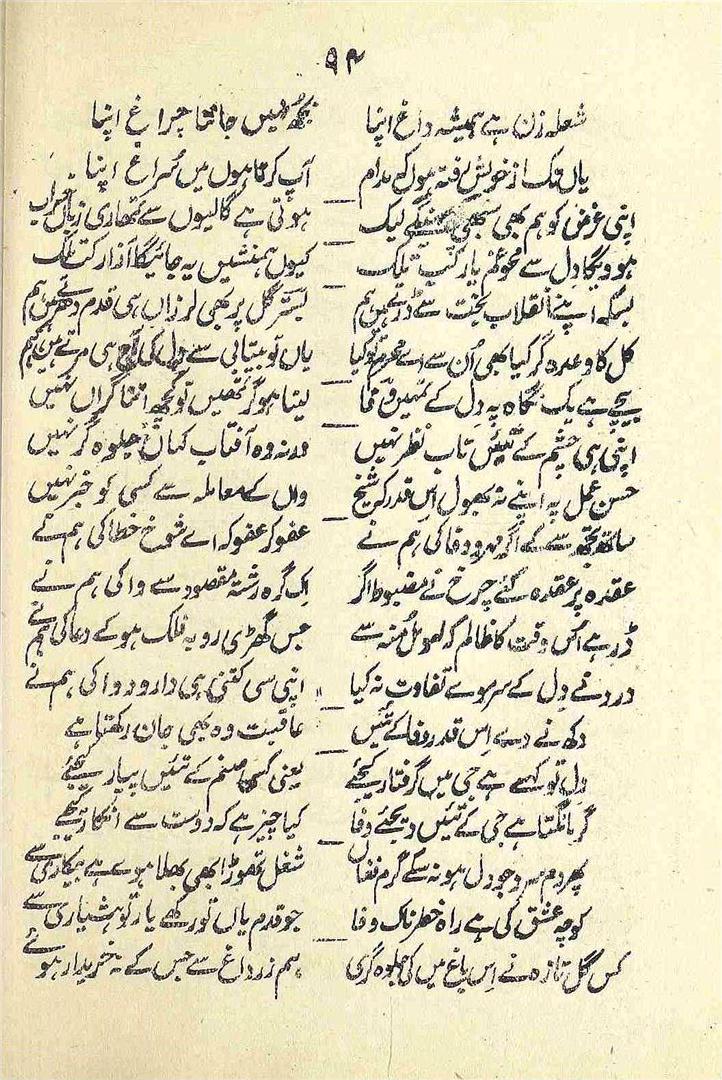 ۹۴
شعلہ زن ہے ہمیشہ داغ اپنا بجھ نہیں جانتا چراغ اپنا
یاں تک از خویش رفتہ ہوں کہ مدام آپ کرتا ہوں میں سُراغ اپنا
اپنی غرض کو ہم بھی سبھی لیک ہوتی ہے گالیوں سے تمھاری زباں خراب
ہوویگا دل سے محو غم یار کب تلک کیوں ہمنشیں یہ جائیگا آزار کب تلک
بسکہ اپنے انقلاب بخت سے ڈرتے ہیں ہم بستر گل پر بھی لرزاں ہی قدم دھرتے ہیں ہم
کل کا وعدہ گر کیا بھی اُن سے اے محرم تو کیا یاں تو بیتابی سے دل کی آج ہی مرتے ہیں ہم
بیچے ہے یک نگاہ پہ دِل کے تئیں وفا لینا ہو گر تمھیں تو کچھ اتنا گراں نہیں
اپنی ہی چشم کے تئیں تاب نظر نہیں ورنہ وہ آفتاب کہاں جلوہ گر نہیں
حسن عمل پہ اپنے نہ بھول اِس قدر کہ شیخ واں کے معاملہ سے کسی کو خبر نہیں
ساتھ تجھ سے کے اگر مہر و وفا کی ہم نے عفو کر عفو کہ اے شوخ خطا کی ہم نے
عقدہ پر عقدہ کئے چرخ نے مضبوط اگر اِک گرہ رشتۂ مقصود سے وا کی ہم نے
ڈر ہے اُس وقت کا ظالم کہ اُٹھول مُنہ سے جس گھڑی رو بہ فلک ہو کے دعا کی ہم نے
درد نے دِل کے سر مو سے تفاوت نہ کیا اپنی سی کتنی ہی دارو و دوا کی ہم نے
دکھ نے دے اِس قدر وفا کے تئیں عاقبت وہ بھی جان رکھتا ہے
دِل تو کہے ہے جی میں گرفتار کیجئے یعنی کسی صنم کے تئیں پیار کیجئے
گر مانگتا ہے جی کے تئیں دیجئے وفا کیا چیز ہے کہ دوست سے انکار کیجئے
پھر دم سرد جو دل ہو نہ سکے گرم فغاں شغل تھوڑا بھی بھلا ہوے ہے بیکاری سے
کوچہ عشق کی ہے راہ خطرناک وفا جو قدم یاں تو رکھے یار تو ہشیاری سے
کس گل تازہ نے اِس باغ میں کی جلوہ گری ہم زر داغ سے جس کے نہ خریدار ہوئے